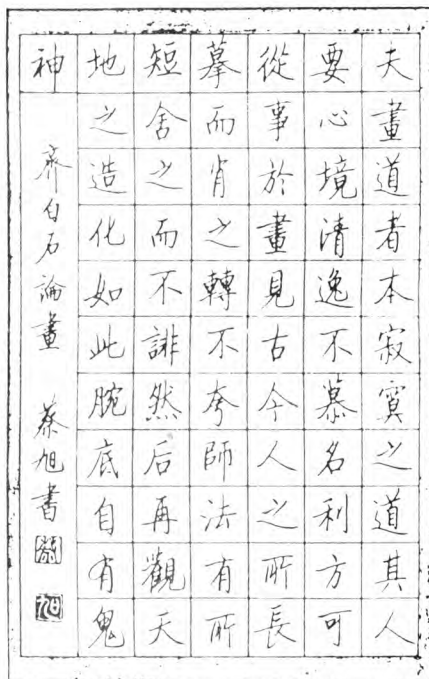 夫畫道者本寂寞之道其人
要心境清逸不慕名利方可
從事於畫見古今人之所長
摹而肖之轉不夸師法有所
短舍之而不誹然后再觀天
地之造化如此腕底自有鬼
神
齊白石論畫 蔡旭書
旭